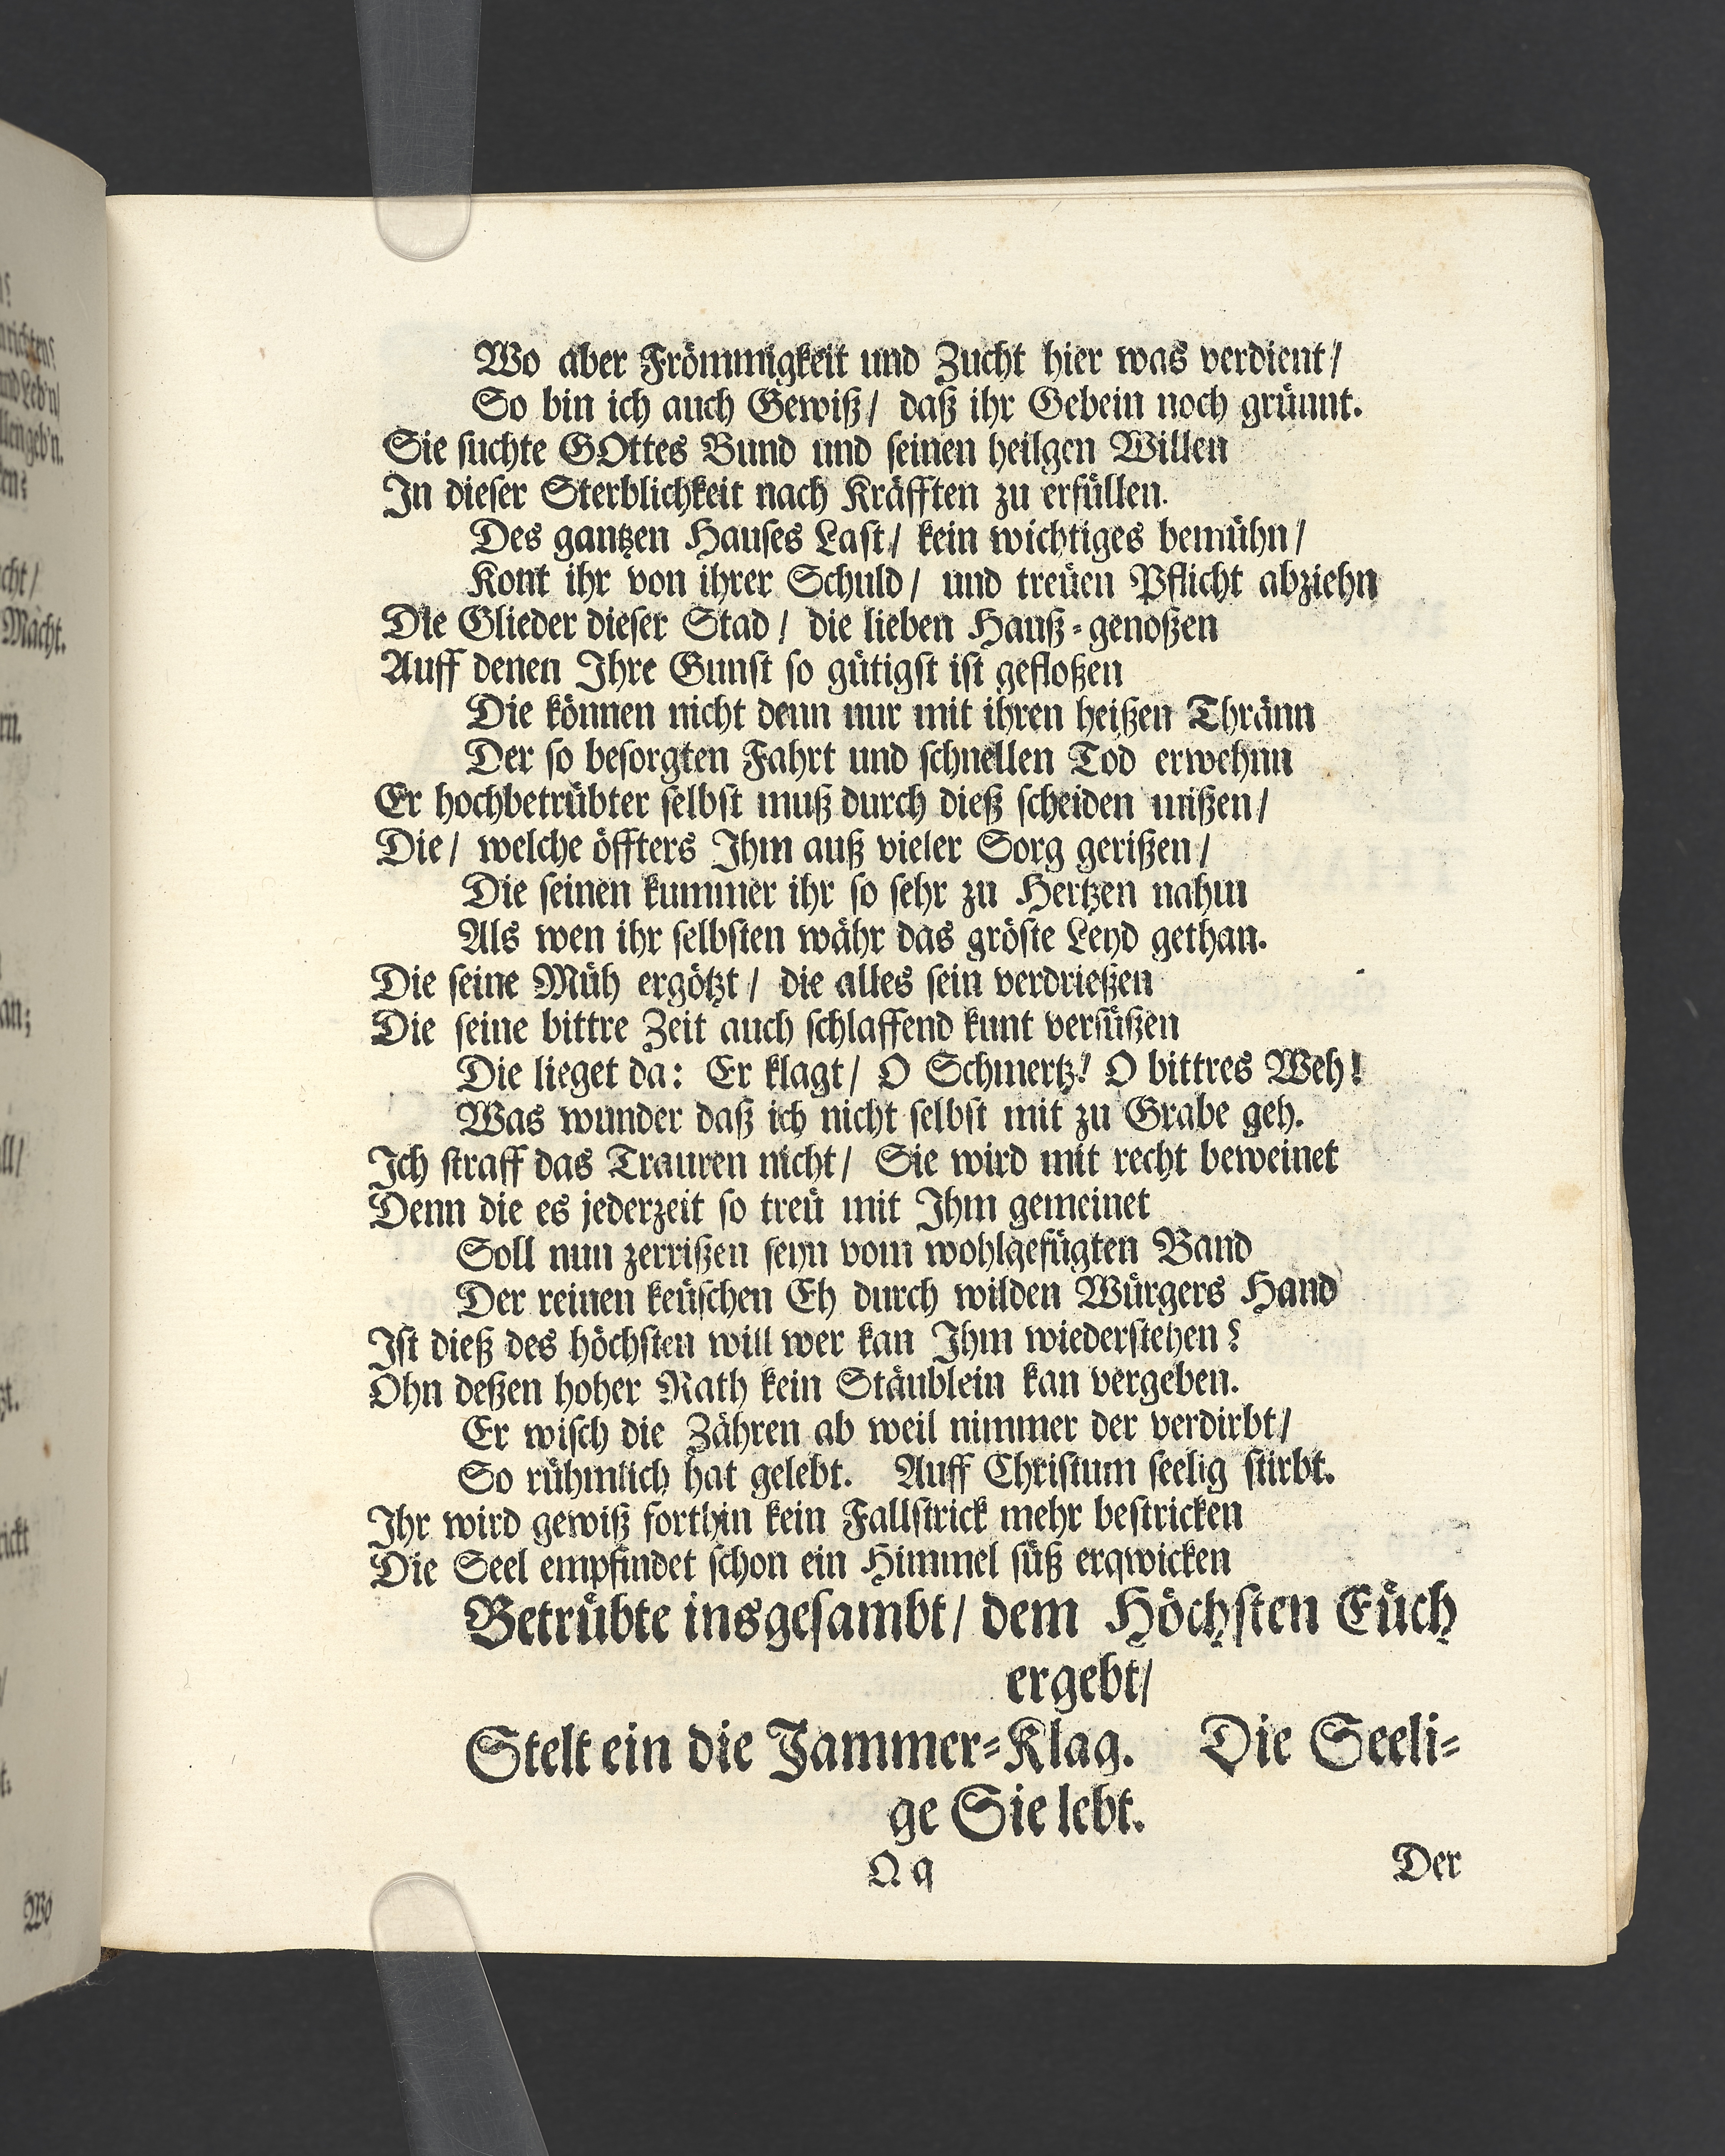 Wo aber Frömmigkeit und Zucht hier was verdient/
So bin ich auch Gewiß/ daß ihr Gebein noch grünnt.
Sie suchte GOttes Bund und seinen heilgen Willen
In dieser Sterblichkeit nach Kräfften zu erfüllen.
Des gantzen Hauses Last/ kein wichtiges bemühn/
Kont ihr von ihrer Schuld/ und treüen Pflicht abziehn
Die Glieder dieser Stad/ die lieben Hauß-genoßen
Auff denen Ihre Gunst so gütigst ist gefloßen
Die können nicht denn nur mit ihren heißen Thränn
Der so besorgten Fahrt und schnellen Tod erwehnn
Er hochbetrübter selbst muß durch dieß scheiden mißen/
Die/ welche öffters Ihm auß vieler Sorg gerißen/
Die seinen kummer ihr so sehr zu Hertzen nahm
Als wen ihr selbsten währ das gröste Leyd gethan.
Die seine Müh ergötzt/ die alles sein verdrießen
Die seine bittre Zeit auch schlaffend kunt versüßen
Die lieget da: Er klagt/ O Schmertz! O bittres Weh!
Was wunder daß ich nicht selbst mit zu Grabe geh.
Ich straff das Trauren nicht/ Sie wird mit recht beweinet
Denn die es jederzeit so treü mit Ihm gemeinet
Soll nun zerrißen seyn vom wohlgefügten Band
Der reinen keüschen Eh durch wilden Würgers Hand
Ist dieß des höchsten will wer kan Ihm wiederstehen?
Ohn deßen hoher Rath kein Stäublein kan vergehen.
Er wisch die Zähren ab weil nimmer der verdirbt/
So rühmlich hat gelebt. Auff Christum seelig stirbt.
Ihr wird gewiß forthin kein Fallstrick mehr bestricken
Die Seel empfindet schon ein Himmel süß erqwicken
Betrübte insgesambt/ dem Höchsten Eüch
ergebt/
Stelt ein die Jammer-Klag. Die Seeli-
ge Sie lebt.
Qq
Der